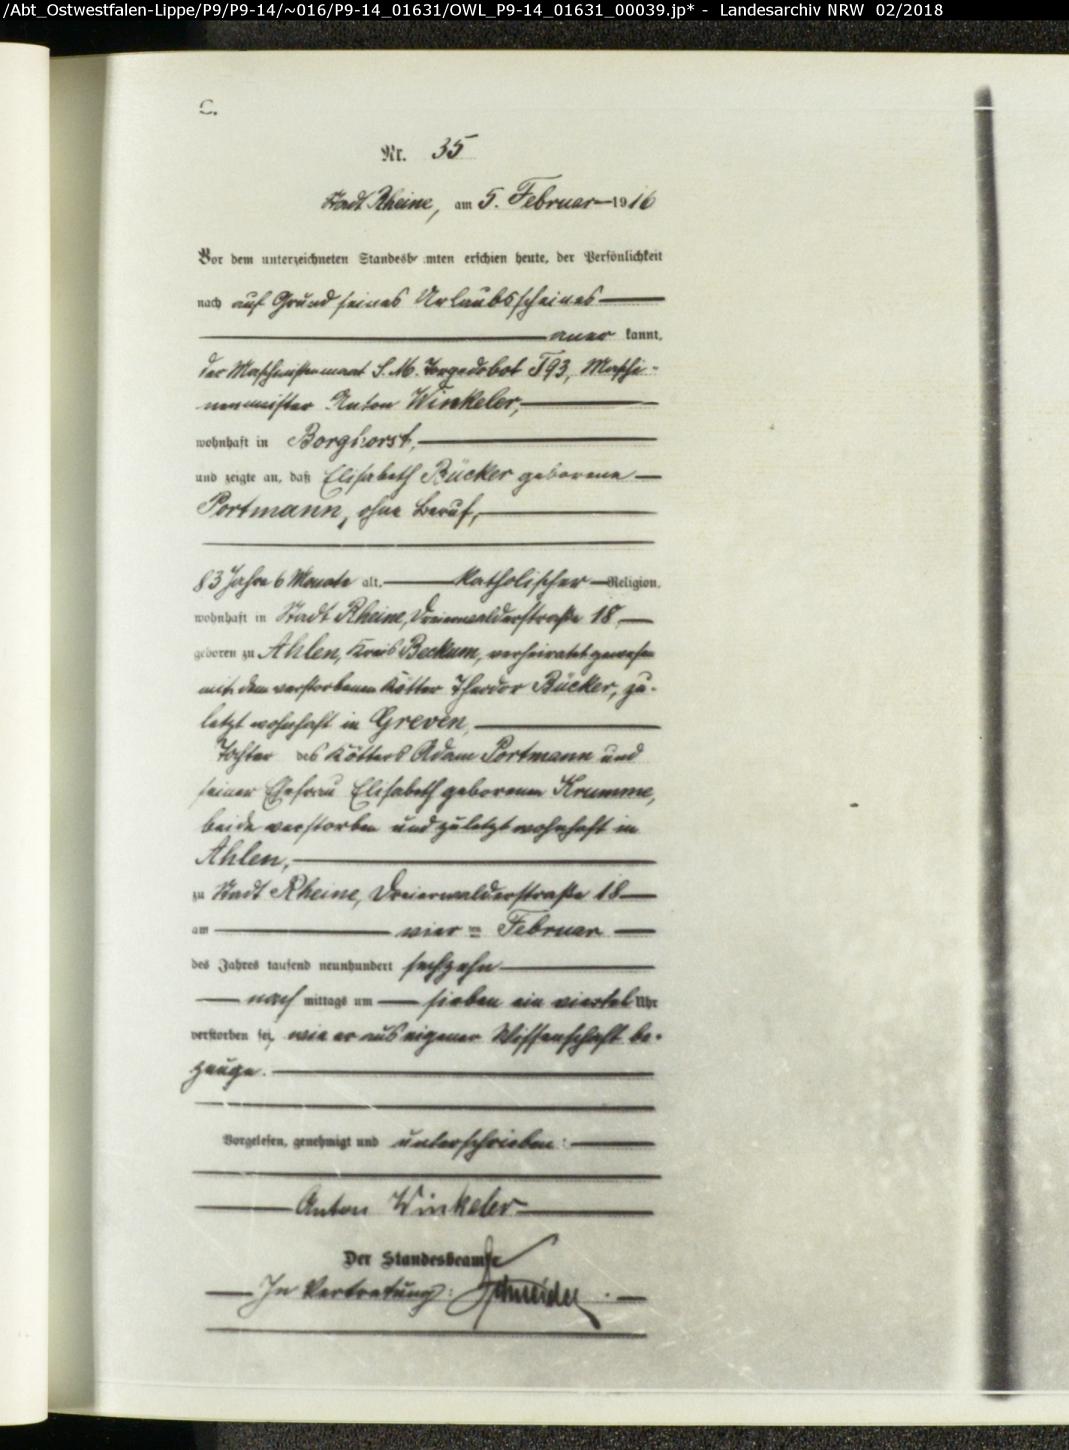 /Abt_Ostwestfalen-Lippe/P9/P9-14/~016/P9-14_01631/OWL_P9-14_01631_00039.jp* - Landesarchiv NRW 02/2018
C.
Nr. 35
Stadt Rheine, am 5. Februar 1916
Vor dem unterzeichneten Standesbeamten erschien heute, der Persönlichkeit
nach auf Grund seines Urlaubsscheines
aner kannt,
der Maschinistenmaat S. M. Torpedobot T93, Maschi-
nenmeister Anton Winkeler,
wohnhaft in Borghorst,
und zeigte an, daß Elisabeth Bücker geborene
Portmann, ohne Beruf,
83 Jahre 6 Monate alt, katholischer Religion,
wohnhaft in Stadt Rheine, Dreierwalderstraße 18,
geboren zu Ahlen, Kreis Beckum, verheiratet gewesen
mit dem verstorbenen Kötter Theodor Bücker, zu-
letzt wohnhaft in Greven,
Tochter des Kötters Adam Portmann und
seiner Ehefrau Elisabeth geborenen Krumme,
beide verstorben und zuletzt wohnhaft in
Ahlen,
zu Stadt Rheine, Dreierwalderstraße 18
am vier ten Februar
des Jahres tausend neunhundert sechzehn
nach mittags um sieben ein viertel Uhr
verstorben sei, wie er aus eigener Wissenschaft be-
zeuge.
Vorgelesen, genehmigt und unterschrieben:
Anton Winkeler
Der Standesbeamte
In Vertretung: Schneider.